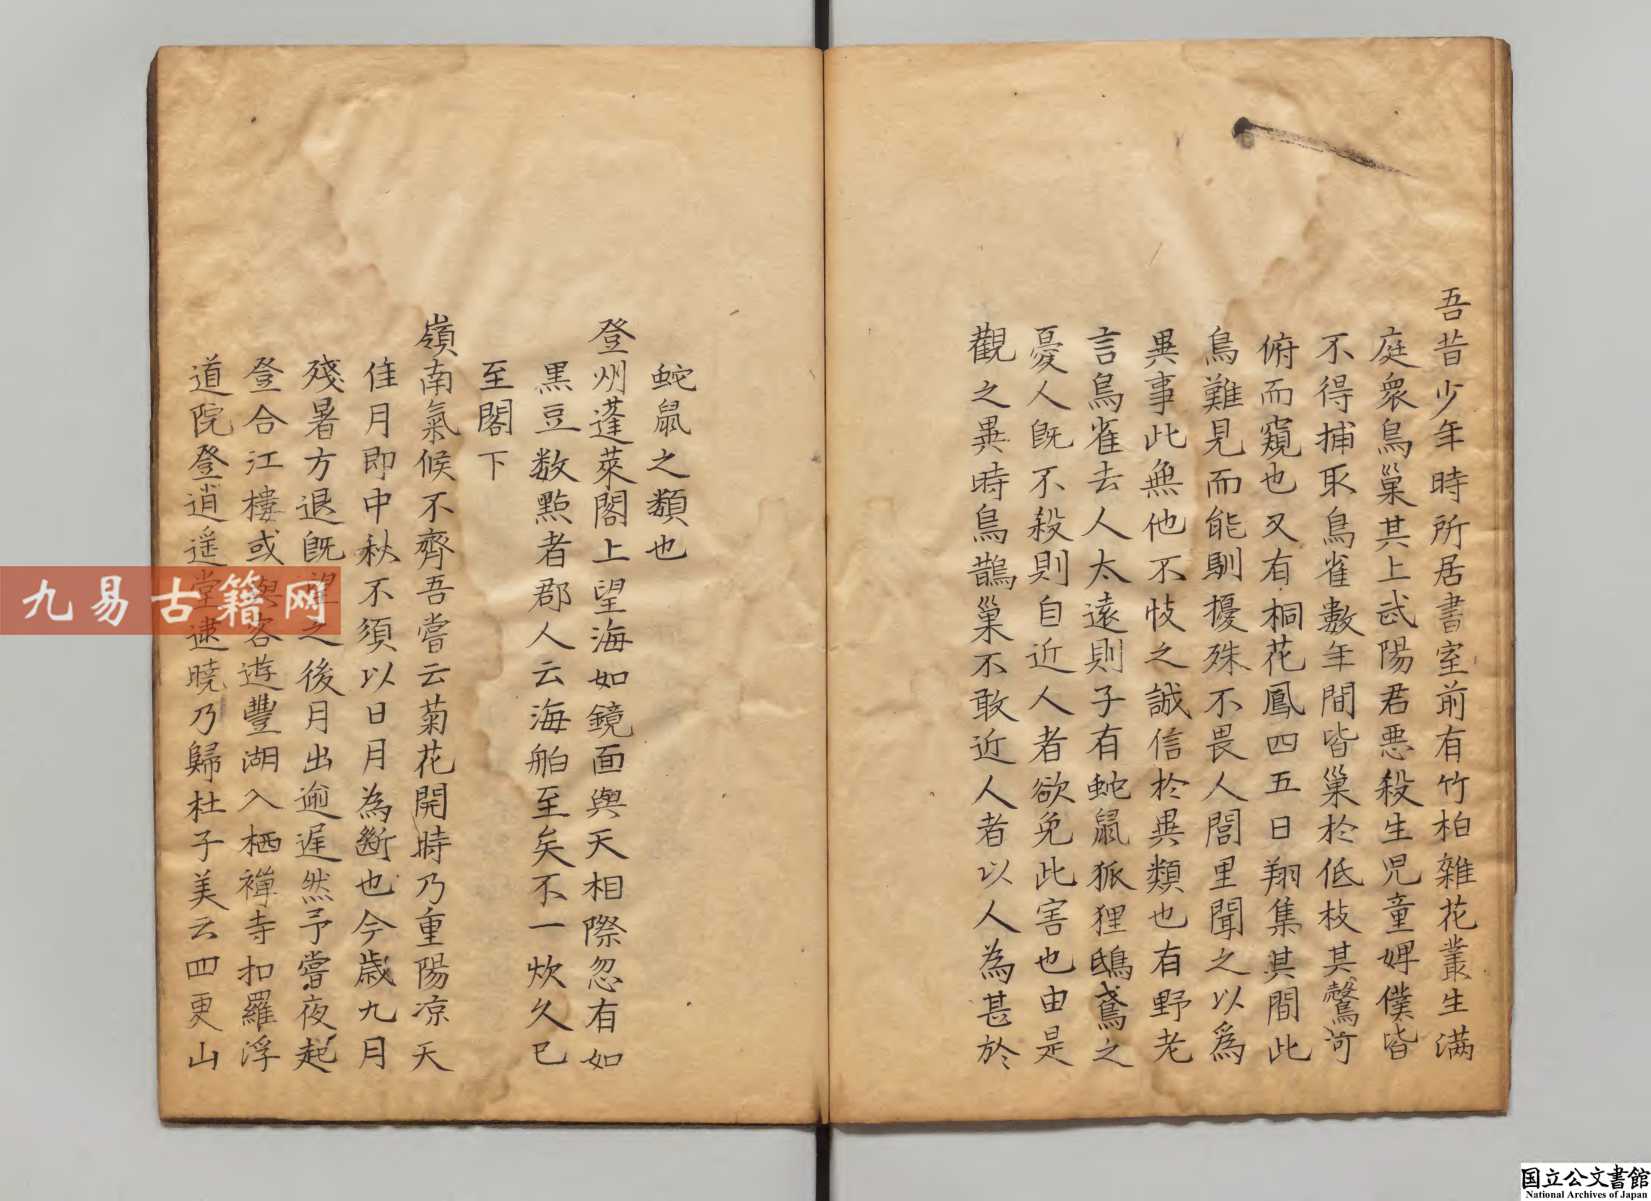 吾昔少年時所居書室前有竹柏雜花叢生滿
庭衆鳥巢其上武陽君惡殺生児童婢僕皆
不得捕取鳥雀數年間皆巢於低枝其鷇可
俯而窺也又有桐花鳳四五日翔集其間此
鳥難見而能馴擾殊不畏人閭里聞之以為
異事此無他不忮之誠信於異類也有野老
言鳥雀去人太遠則子有蛇鼠狐狸鴟鳶之
憂人旣不殺則自近人者欲免此害也由是
觀之異時鳥鵲巢不敢近人者以人為甚於
蛇鼠之類也
登州蓬萊閣上望海如鏡面與天相際忽有如
黒豆数點者郡人云海舶至矣不一炊久已
至閣下
嶺南氣候不齊吾嘗云菊花開時乃重陽凉天
佳月即中秋不須以日月為断也今歳九月
殘暑方退旣望之後月出逾遅然予嘗夜起
登合江樓或與客遊豐湖入栖禅寺扣羅浮
道院登逍遥堂逮曉乃歸杜子美云四更山
九易古籍网
国立公文書館
National Archives of Japan